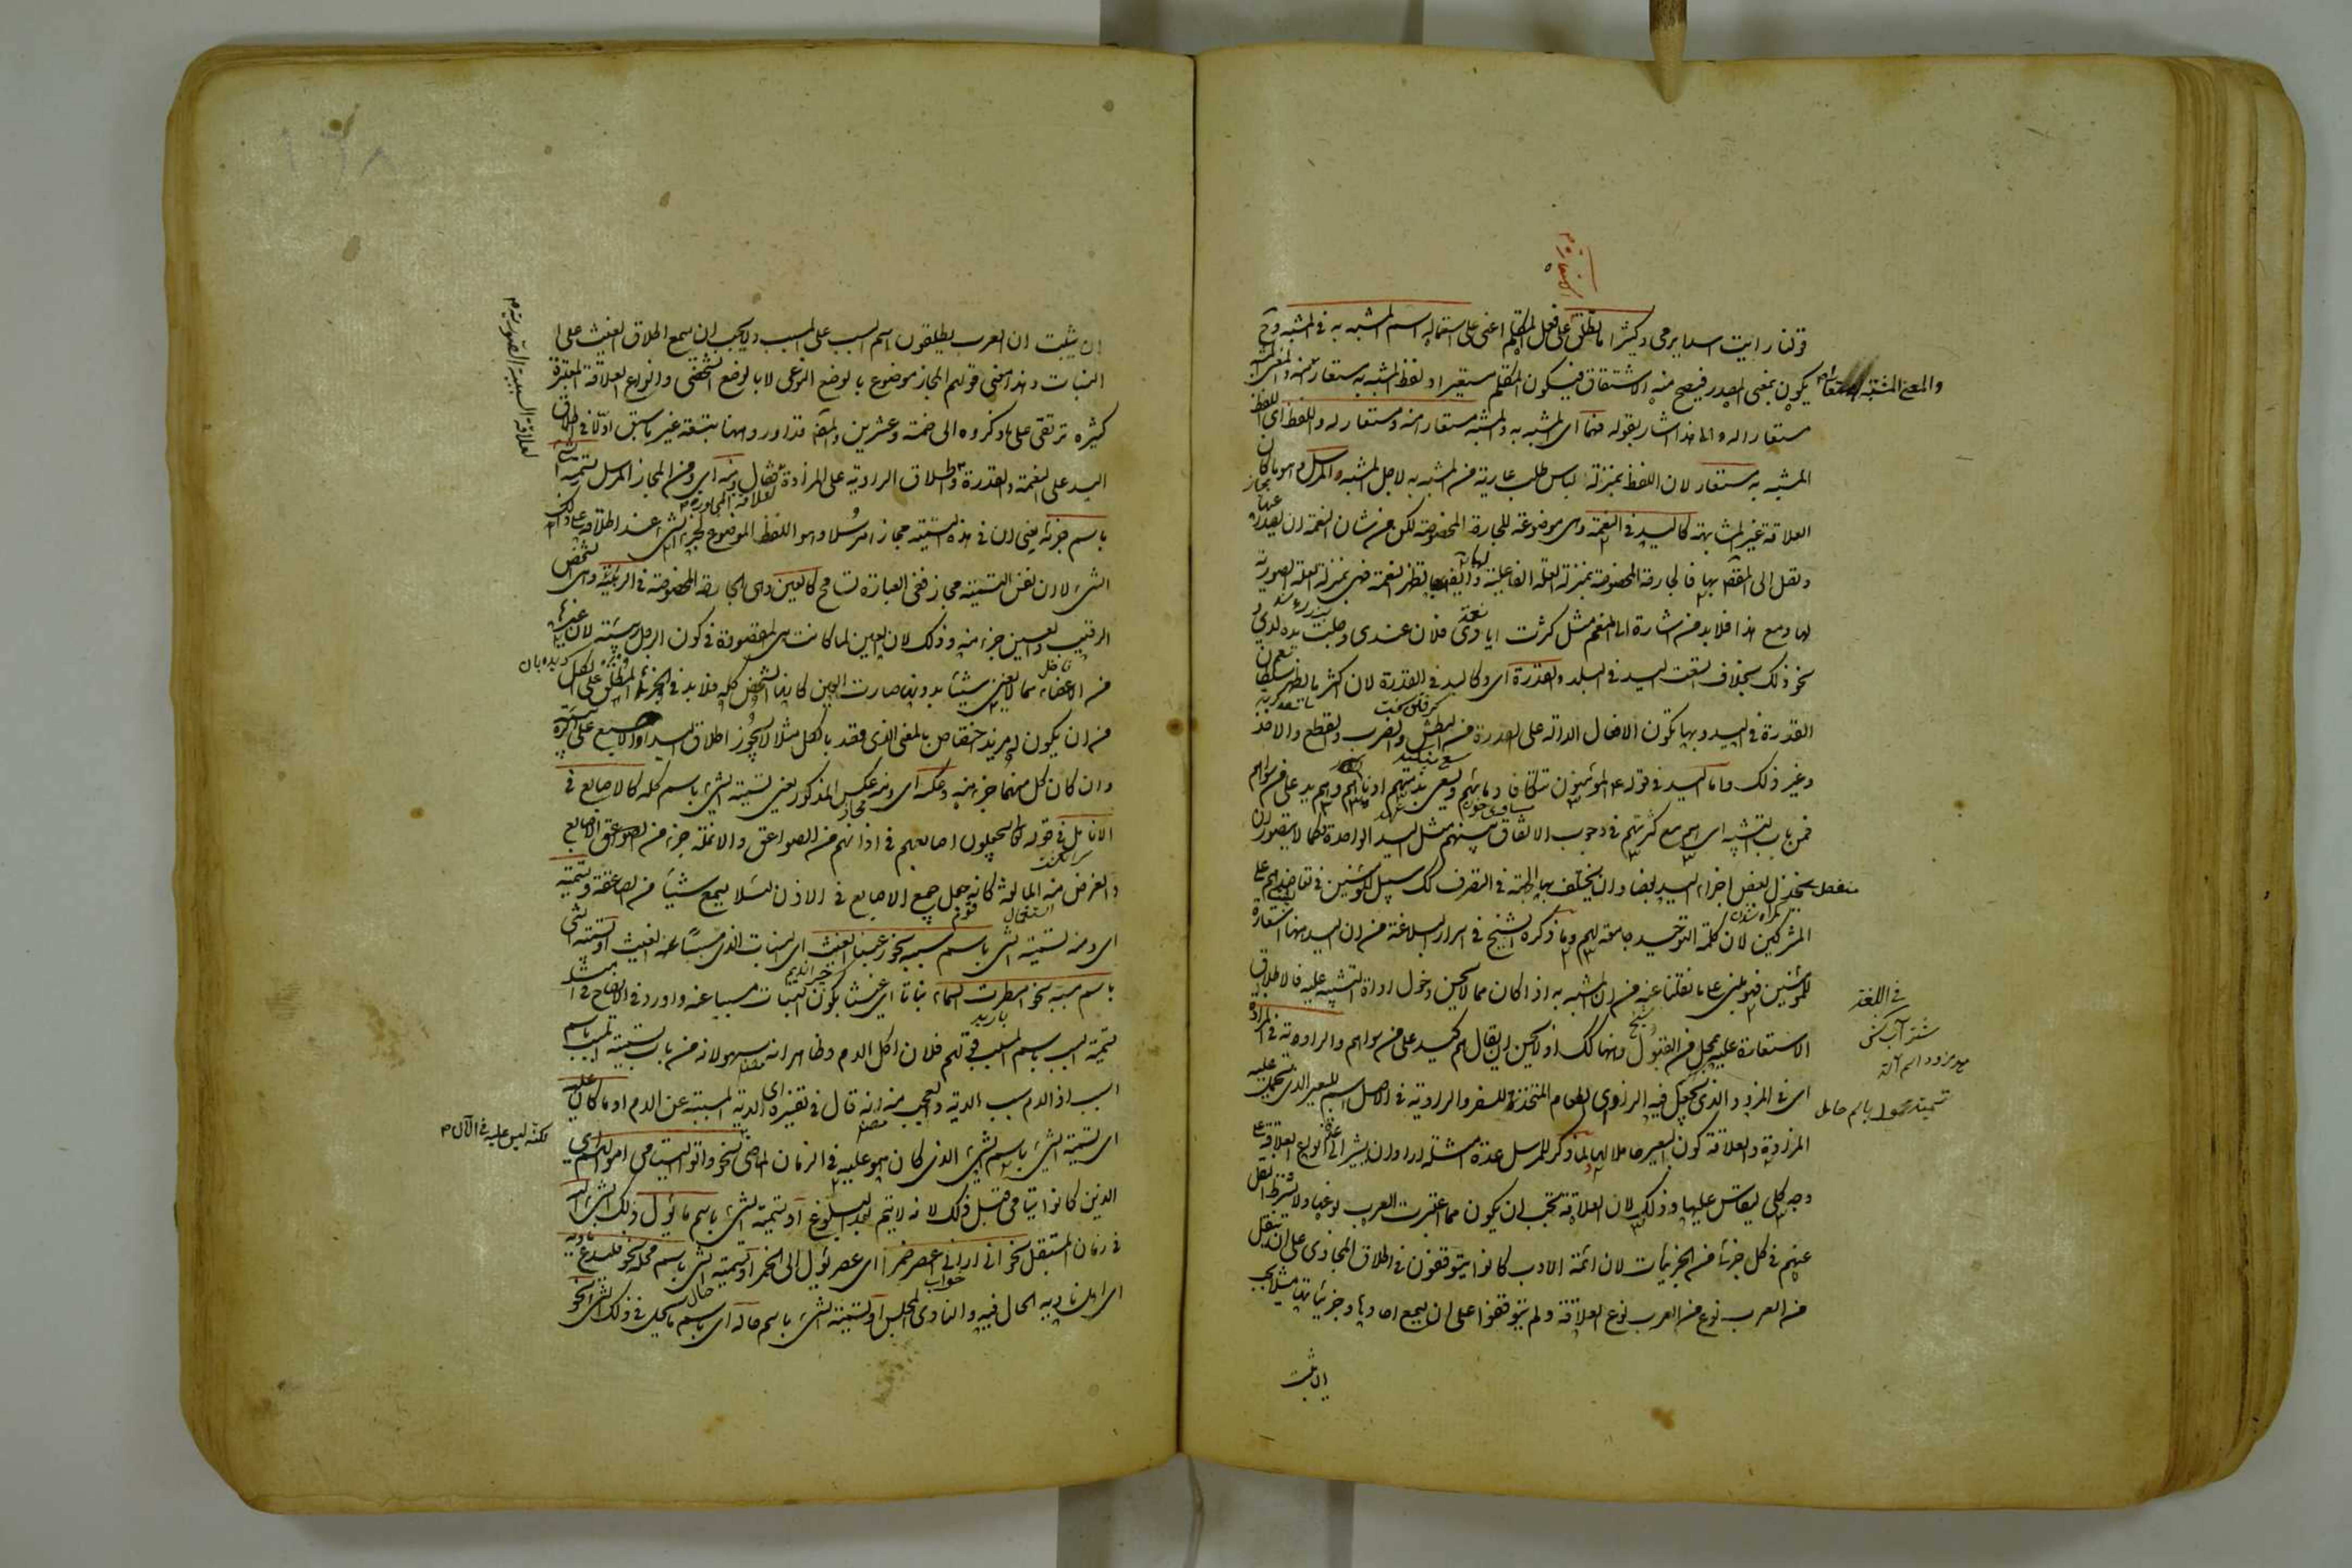 قولنا رايت اسدا يرمى وكثيرا ما تطلق على فعل المتكلم اعنى على استعماله اسم المشبه به فى المشبه وح
يكون بمعنى المصدر فيصح منه الاشتقاق فيكون المتكلم مستعيرا ولفظ المشبه به مستعارا منه والمعنى المشبه
مستعارا له والى هذا اشار بقوله فهما اى المشبه به والمشبه مستعار منه ومستعار له واللفظ اى اللفظ
المشبه به مستعار لان اللفظ بمنزلة لباس طلب عارية من المشبه به لاجل المشبه والمرسل وهو ما كان
العلاقة غير المشابهة كاليد فى النعمة وهى موضوعة للجارحة المخصوصة لكن من شان النعمة ان تصدر عنها
وتصل الى المقصود بها فالجارحة المخصوصة بمنزلة العلة الفاعلية لها وايضا بها تظهر النعمة فهى بمنزلة العلة الصورية
لها ومع هذا فلا بد من اشارة الى المنعم مثل كثرت ايادى فلان عندى وجلت يده لدى و
نحو ذلك بخلاف اتسعت اليد فى البلد والقدرة اى وكاليد فى القدرة لان اكثر ما يظهر سلطان
القدرة فى اليد وبها تكون الافعال الدالة على القدرة من البطش والضرب والقطع والاخذ
وغير ذلك واما اليد فى قوله ع المؤمنون تتكافأ دماؤهم ويسعى بذمتهم ادناهم وهم يد على من سواهم
فمن باب التشبيه اى هم مع كثرتهم فى وجوب الاتفاق بينهم مثل اليد الواحدة فكما لا يتصور ان
يخذل بعض اجزاء اليد بعضا وان يختلف بها الجهة فى التصرف كك سبيل المؤمنين فى تعاضدهم على
المشركين لان كلمة التوحيد جامعة لهم وما ذكره الشيخ فى اسرار البلاغة من ان اليد ههنا استعارة
للمؤمنين فهو مبنى على ما نقلنا عنه من ان المشبه به اذا كان مما لا يحسن دخول اداة التشبيه عليه فاطلاق
الاستعارة عليه بمحل من القبول وههنا كك اذ لا يحسن ان يقال هم كيد على من سواهم والراوية فى المزادة
اى فى المزود الذى يجعل فيه الزاد اى الطعام المتخذ للسفر والراوية فى الاصل اسم للبعير الذى يحمل عليه
المزادة والعلاقة كون البعير حاملا لها لما ذكر للمرسل عدة امثلة اراد ان يشير الى عدة انواع العلاقة على
وجه كلى يقاس عليها وذلك لان العلاقة يجب ان يكون مما اعتبرت العرب نوعها ولا يشترط النقل
عنهم فى كل جزئى من الجزئيات لان ائمة الادب كانوا يتوقفون فى اطلاق المجازى على ان ينقل
من العرب نوع العلاقة ولم يتوقفوا على ان يسمع احادها وجزئياتها مثلا يجب
ان يثبت
والمعنى المشبه
فى اللغة
شتر آب كش
تسمية محمول باسم حامل
ان يثبت ان العرب يطلقون اسم السبب على المسبب ولا يجب ان يسمع اطلاق الغيث على
النبات وهذا معنى قولهم المجاز موضوع بالوضع النوعى لا بالوضع الشخصى وانواع العلاقة المعتبرة
كثيرة ترتقى على ما ذكروه الى خمسة وعشرين والمصنف قد اورد ههنا تسعة غير ما سبق اولا فى اطلاق
اليد على النعمة والقدرة واطلاق الراوية على المزادة فقال ومنه اى ومن المجاز المرسل تسمية الشىء
باسم جزئه يعنى ان فى هذه التسمية مجازا مرسلا وهو اللفظ الموضوع لجزء الشىء عند اطلاقه على ذلك
الشىء لا ان نفس التسمية مجاز ففى العبارة تسامح كالعين وهى الجارحة المخصوصة فى الربيئة وهى الشخص
الرقيب والعين جزء منه وذلك لان العين لما كانت هى المقصودة فى كون الرجل ربيئة لان غيرها
من الاعضاء مما لا يغنى شيئا بدونها صارت العين كانها الشخص كله فلا بد فى الجزء المطلق على الكل
من ان يكون له مزيد اختصاص بالمعنى الذى قصد بالكل مثلا لا يجوز اطلاق اليد او الاصبع على الربيئة
وان كان كل منهما جزء منه وعكسه اى ومنه عكس المذكور يعنى تسمية الشىء باسم كله كالاصابع فى
الانامل فى قوله تعالى يجعلون اصابعهم فى اذانهم من الصواعق والانملة جزء من الاصابع
والغرض منه المبالغة كانه جعل جميع الاصابع فى الاذن لئلا يسمع شيئا من الصاعقة وتسمية
اى ومنه تسمية الشىء باسم سببه نحو رعينا الغيث اى النبات الذى سببه الغيث او تسمية الشىء
باسم مسببه نحو امطرت السماء نباتا اى غيثا لكون النبات مسببا عنه واورد فى الايضاح فى امثلة
تسمية السبب باسم المسبب قولهم فلان اكل الدم وظاهر انه سهو لانه من باب تسمية المسبب باسم
السبب اذ الدم سبب الدية والعجب منه انه قال فى تفسيره اى الدية المسببة عن الدم او ما كان عليه
اى تسمية الشىء باسم الشىء الذى كان هو عليه فى الزمان الماضى نحو واتوا اليتامى اموالهم اى
الذين كانوا يتامى قبل ذلك لانه لا يتم بعد البلوغ او تسمية الشىء باسم ما يؤل ذلك الشىء اليه
فى زمان المستقبل نحو انى ارانى اعصر خمرا اى عصيرا يؤل الى الخمر او تسمية الشىء باسم محله نحو فليدع ناديه
اى اهل ناديه الحال فيه والنادى المجلس او تسمية الشىء باسم حاله اى باسم ما يحل فى ذلك الشىء نحو
لعلاقة السببية الصورية
لعلاقة المجاورة
ديده بان
لكنه ليس عليه فى الآن
١٦٨